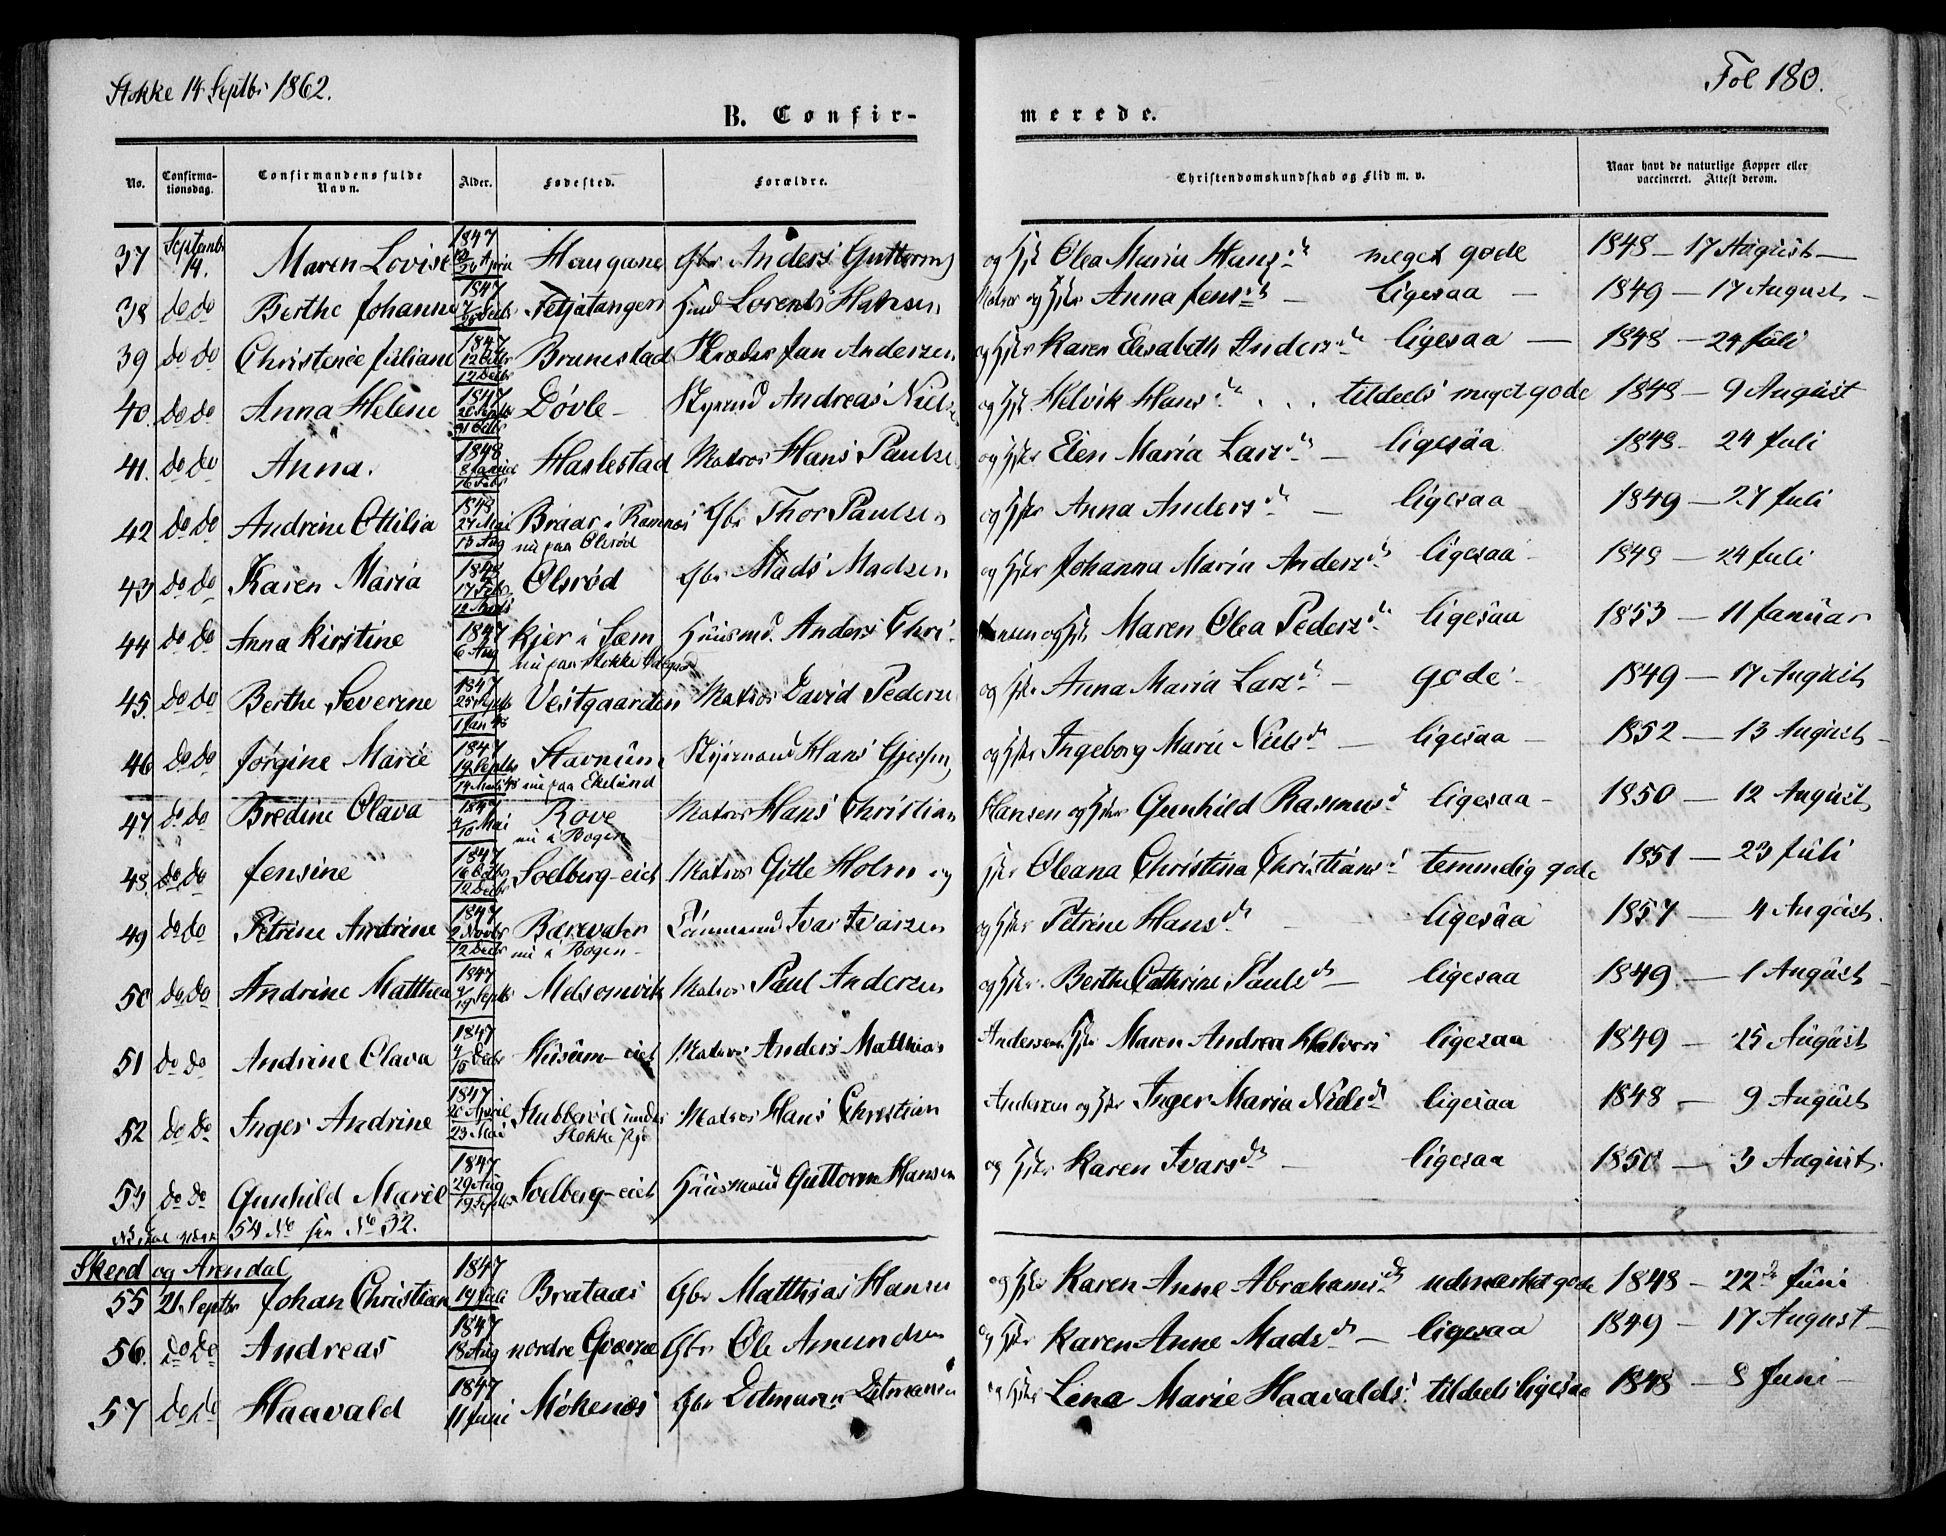 Stokke 14 Septbr 1862.
Fol 180.
B. Confir-
merede.
No. Confirma-tionsdag. Confirmandens fulde Navn. Alder. Fødested. Forældre. Christendomskundskab og Flid m. v. Naar havt de naturlige Kopper eller vaccineret. Attest derom.
37 Septembr 14. Maren Lovise 1847 April Haugane Gbr Anders Guttorms og Hstr Olea Maria Hans d. meget gode 1848 — 17 August —
38 do do Berthe Johanne 1847 Fetjatangen Lorents Hansen og Hstr Anna Jens d. — ligesaa — 1849 — 17 August —
39 do do Christence Juliane 1847 12 Octbr 12 Decbr Brunestad Skræder Jan Andersen og Hstr Karen Elisabeth Anders d. ligesaa — 1848 — 24 Juli
40. do do Anna Helene 1847 26 Septbr 31 Octbr Døvle — Styrmd Andreas Niels og Hstr Helvik Hans d. . . tildeels meget gode 1848 — 9 August
41. do do Anna. 1848 8 Januar 16 Febr Haslestad Matros Hans Paulse og Hstr Elen Maria Lars d. — ligesaa 1848 — 24 Juli
42 do do Andrine Ottilia 1848 27 Mai 13 Aug Braar i Ramnes nu paa Olsrød Gbr Thor Paulsen og Hstr Anna Anders d. ligesaa 1849 — 27 Juli
43 do do Karen Maria 1848 17 Febr 12 Marts Olsrød Gbr Mads Madsen og Hstr Johanna Maria Anders d. ligesaa 1849 — 24 Juli
44 do do Anna Kirstine 1847 6 Aug Kjer i Sem nu paa Stokke Huusmd. Anders Chri- stensen og Hstr Maren Olea Peders d. ligesaa 1853 — 11 Januar
45. do do Berthe Severine 1847 25 Septbr 1 Jan 48 Vestgaarden Matros David Peders og Hstr Anna Maria Lars d. — gode — 1849 — 17 August
46 do do Jørgine Marie 1847 19 Septbr Stavnum nu paa Ekelund Styrmand Hans og Hstr Ingeborg Marie Niels d. — ligesaa — 1852 — 13 August —
47. do do Bredine Olava 1847 Mai Rove nu i Bogen Matros Hans Christian Hansen og Hstr Gunhild Rasmus d. ligesaa — 1850 — 12 August
48. do do Jensine 1847 16 Octbr 12 Decbr Soelberg-eiet Matros Gitle Holm og Hstr Oleana Christina Christians d. temmelig gode 1851 — 23 Juli
49 do do Petrine Andrine 1847 2 Novbr 12 Decbr Bærevahr nu i Bogen — Ivar Ivarsen og Hstr Petrine Hans d. — ligesaa 1857 — 4 August.
50 do do Andrine Matthea 1847 19 Septbr Melsomvik Matros Paul Andersen og Hstr. Berthe Cathrine Pauls d. — ligesaa 1849. — 1 August —
51 do do Andrine Olava 1847 Decbr Husum-eiet Matros Anders Matthias Andersen Hstr Maren Andrea Halvors ligesaa 1849 — 25 August
52 do do Inger Andrine 1847 20 April 23 Mai Stubberød under Stokke Matros Hans Christian Andersen og Hstr Inger Maria Niels d. ligesaa 1848 — 9 August
53 do do Gunhild Marie 1847 29 Aug 19 Septbr Soelberg-eiet Huusmand Guttorm Hansen og Hstr Karen Ivars d. — ligesaa 1850 — 3 August.
54 No 32.
Skeed og Arendal
55 21 Septbr Johan Christian 1847 19 Juli Brataas Gbr Matthias Hansen og Hstr Karen Anne Abrahams d. udmærket gode 1848 — 22 Juni
56. do do Andreas 1847 18 Aug nordre Qværne Gbr Ole Amundsen og Hstr Karen Anne Mads d. — ligesaa 1849 — 17 August —
57 do do Haavald 1847 11 Juni Møkenæs Gbr Ditmar Ditmarsen og Hstr Lena Marie Haavalds d. tildeels ligesaa 1848 — 8 Juni —